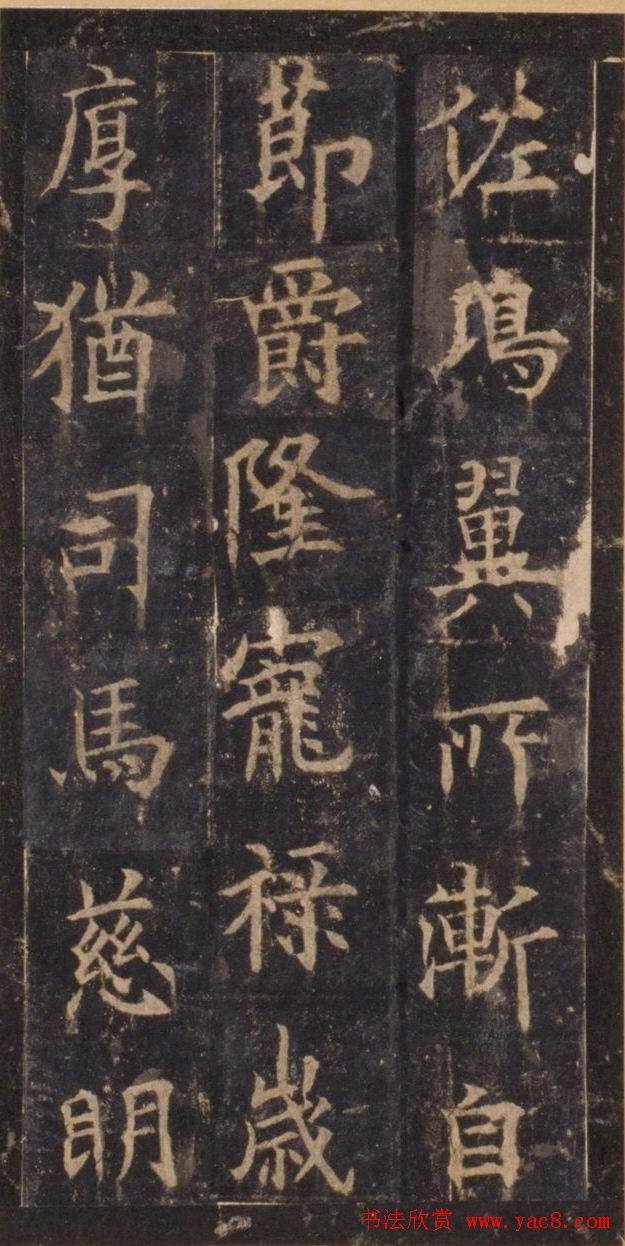 佐鴻翼所漸自
節爵隆寵祿歲
厚猶司馬慈明
书法欣赏 www.yac8.com